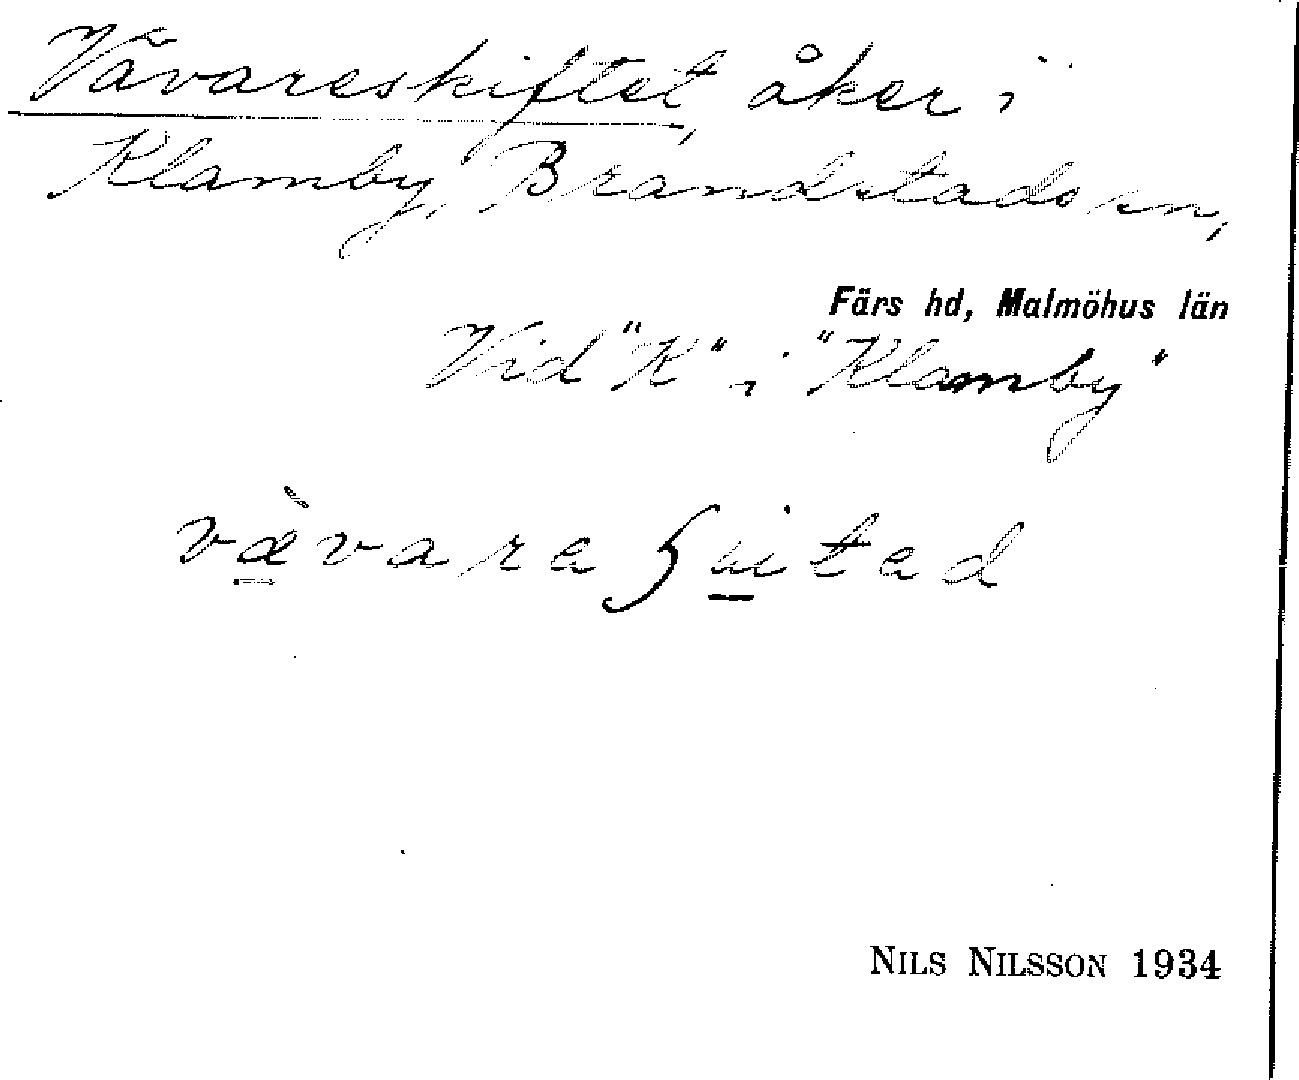 Vävareskiftet, åker i
Klamby, Brandstads sn,
Färs hd, Malmöhus län
Vid "K" i "Klamby"
NILS NILSSON 1934